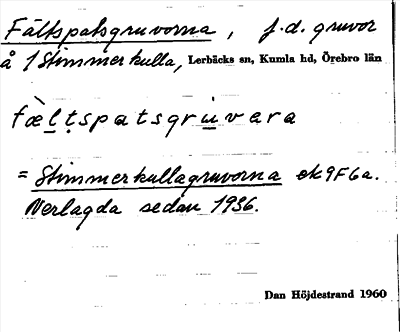 Fältspatsgruvorna, f.d. gruvor
å 1 Stimmerkulla, Lerbäcks sn, Kumla hd, Örebro län
fæ̀l̲t̲spatsgrùvara
= Stimmerkullagruvorna ek 9F6a.
Nerlagda sedan 1936.
Dan Höjdestrand 1960